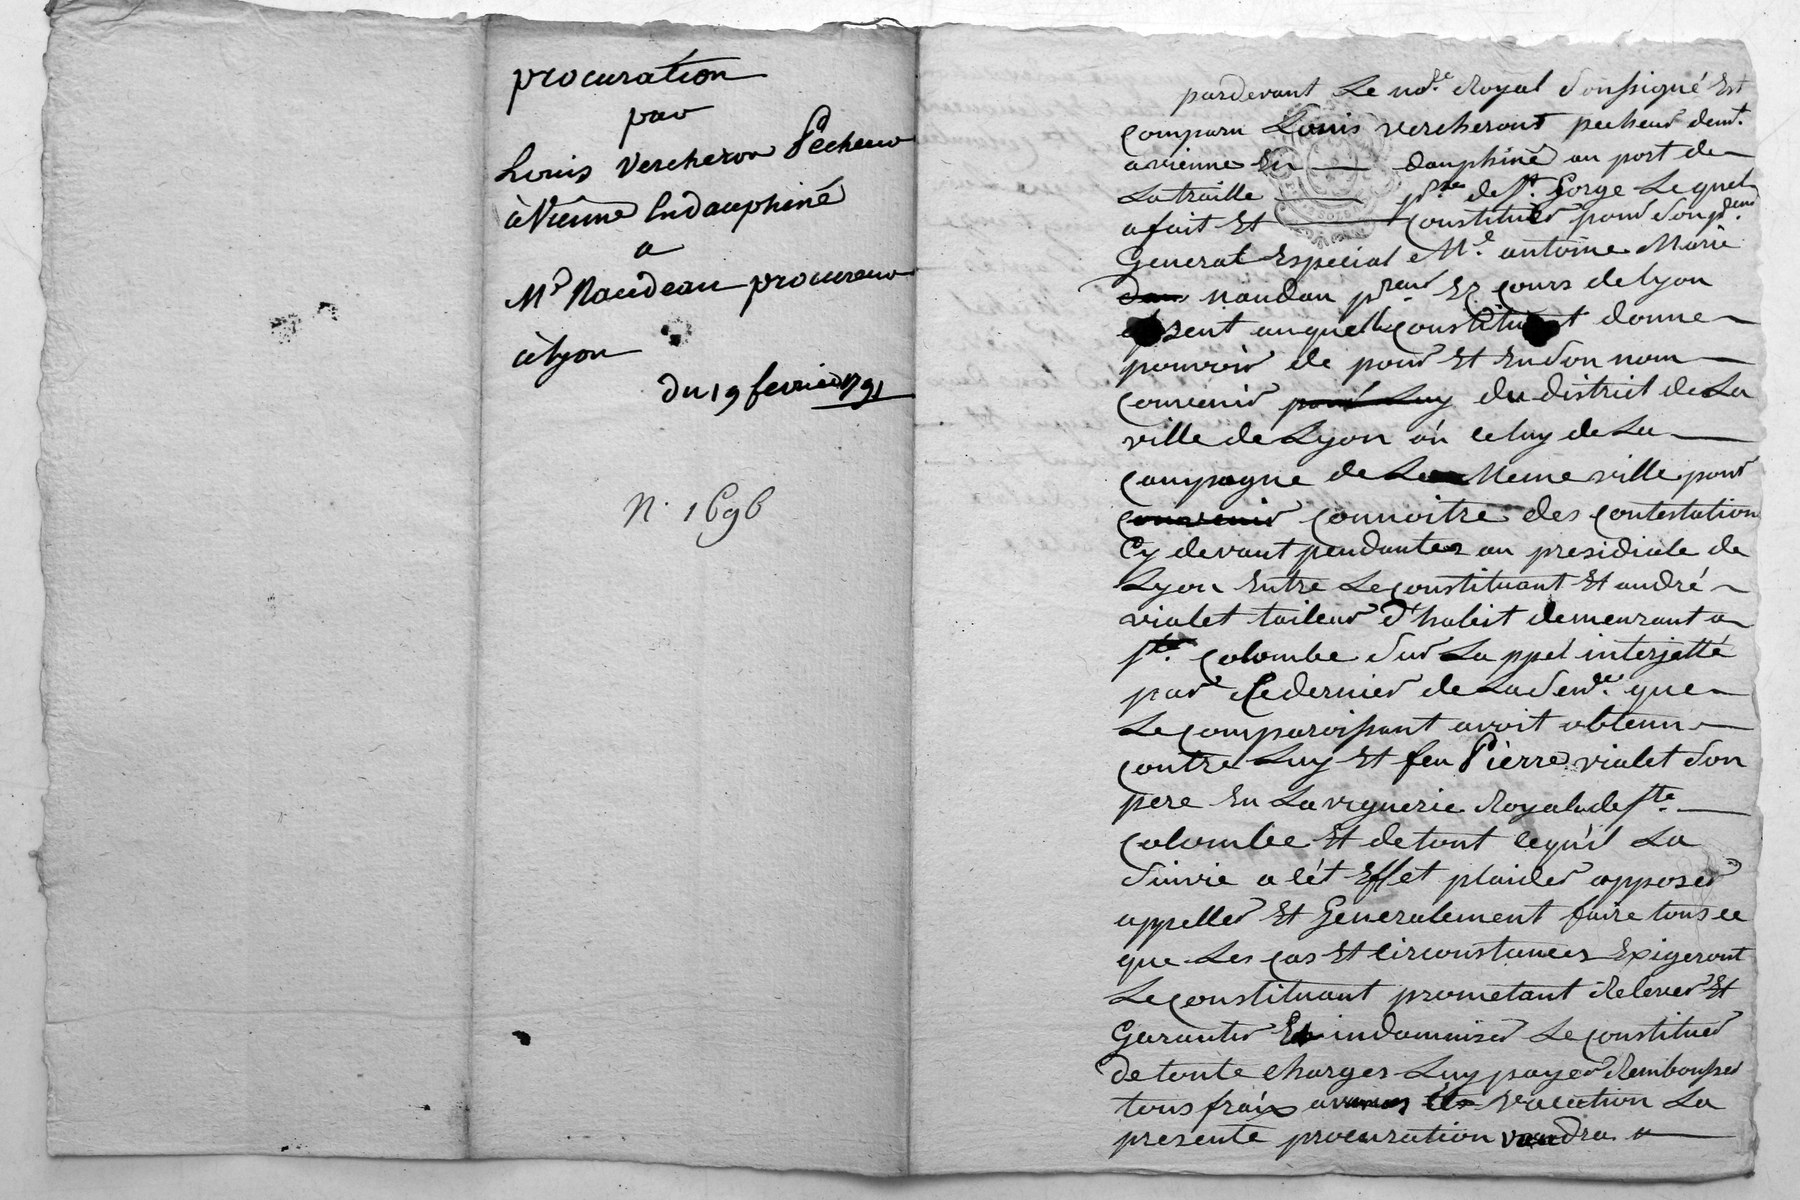 procuration
par
Louis Vercheron Pecheur
à Vienne En dauphiné
a
Mr Naudeau procureur
à lyon
du 19 fevrier 1791
N. 1696
pardevant Le nore. Royal Soussigné Est
comparu Louis vercheront pecheur demt.
a vienne En dauphiné au port de
La traille psse de St. George Lequel
a fait Et constitué pour Son preur
General Especial Me. antoine Marie
naudau preur Es cours de lyon
absent auquel le Constituant donne
pouvoir de pour Et En Son nom
convenir pour Luy du district de La
ville de Lyon ou celuy de La
campagne de La Meme ville pour
convenir connoitre des contestation
Cy devant pendantes au presidiale de
Lyon Entre Le constituant Et andré
vialet taileur d'habit demeurant a
Ste. Colombe Sur Lappel interjetté
par Ce dernier de La Sence. que
Le comparoissant avoit obtenu
contre Luy Et feu Pierre vialet Son
pere En La viguerie Royale de Ste.
Colombe Et de tout ce qu'il La
Suivie a cét Effet plaider opposer
appeller Et Generalement faire tous ce
que Les cas Et circonstances Exigeront
Le constituant prometant Relever Et
Garantir Et indamniser Le constitué
de toute charges Luy payer Rembourser
tous fraix avances vacation La
presente procuration vaudra a